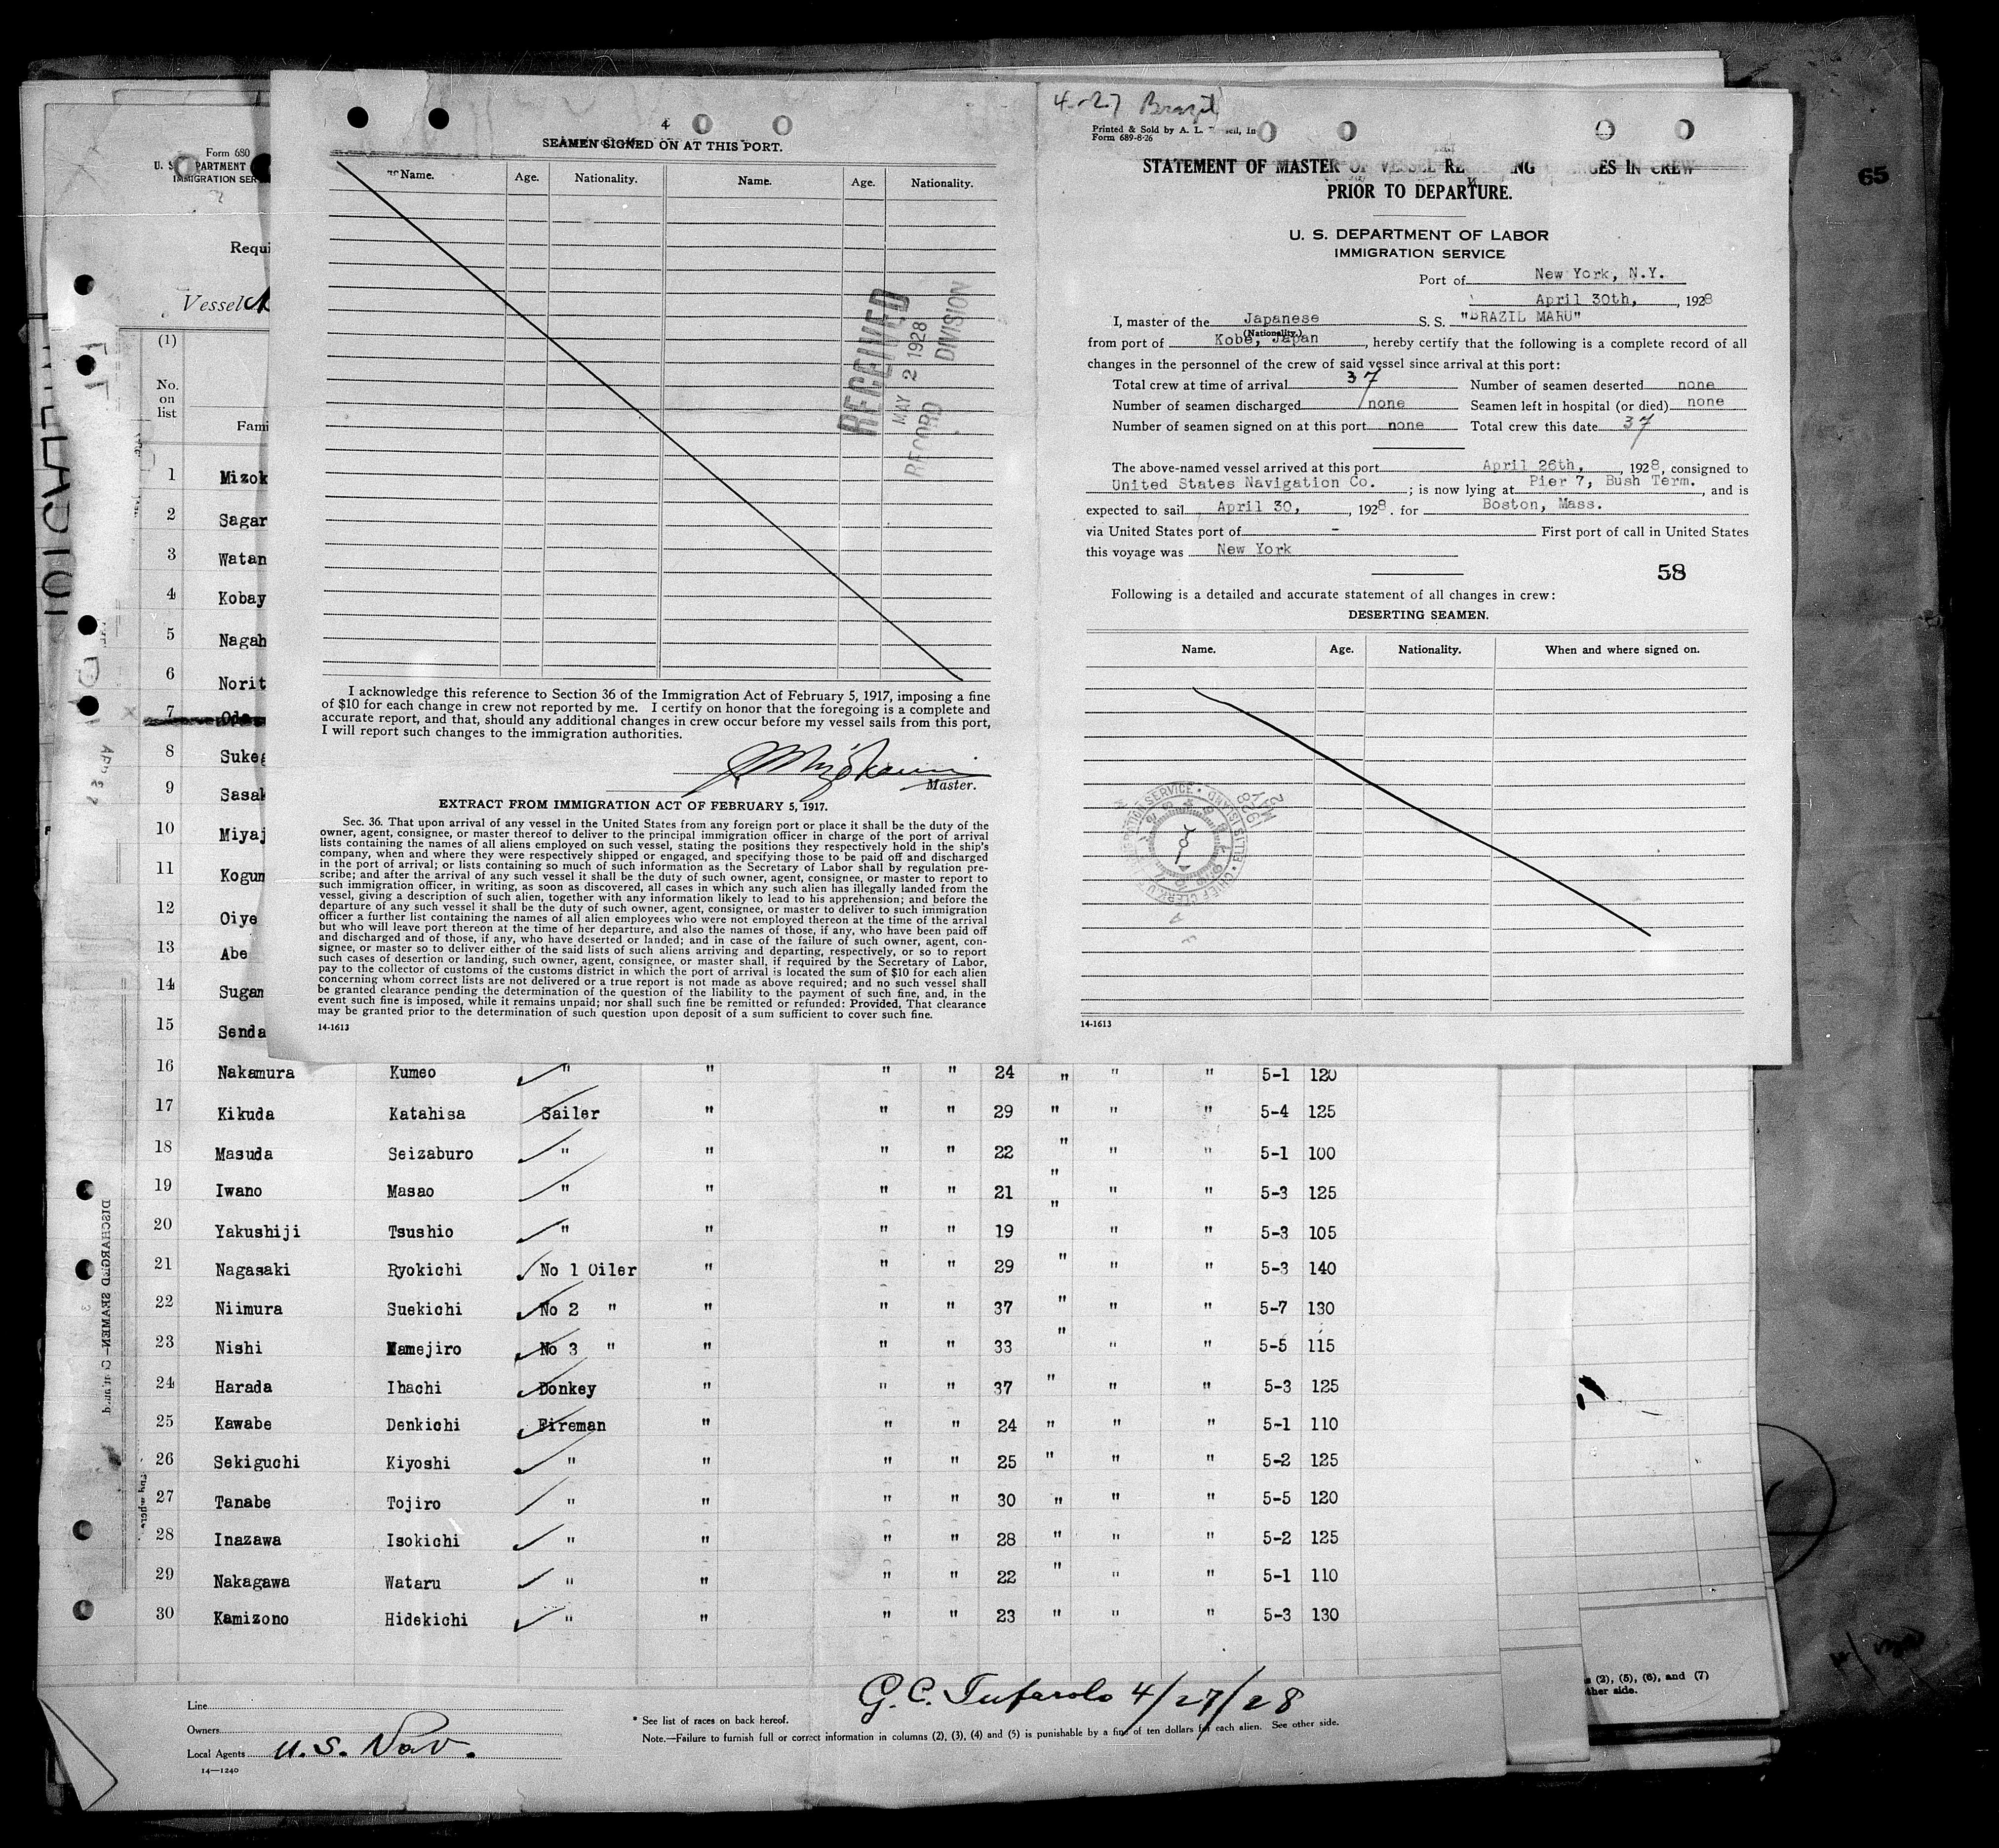 4-27 Brazil
65
Form 680
IMMIGRATION SER
Requi
Vessel
(1)
No.
on
list
Fami
1 Mizok
2 Sagar
3 Watan
4 Kobay
5 Nagah
6 Norit
7 Oda
8 Sukeg
9 Sasak
10 Miyaj
11 Kogum
12 Oiye
13 Abe
14 Sugan
15 Senda
4
SEAMEN SIGNED ON AT THIS PORT.
Name. Age. Nationality. Name. Age. Nationality.
RECEIVED
MAY 2 1928
RECORD DIVISION
I acknowledge this reference to Section 36 of the Immigration Act of February 5, 1917, imposing a fine
of $10 for each change in crew not reported by me. I certify on honor that the foregoing is a complete and
accurate report, and that, should any additional changes in crew occur before my vessel sails from this port,
I will report such changes to the immigration authorities.
Master.
EXTRACT FROM IMMIGRATION ACT OF FEBRUARY 5, 1917.
Sec. 36. That upon arrival of any vessel in the United States from any foreign port or place it shall be the duty of the
owner, agent, consignee, or master thereof to deliver to the principal immigration officer in charge of the port of arrival
lists containing the names of all aliens employed on such vessel, stating the positions they respectively hold in the ship's
company, when and where they were respectively shipped or engaged, and specifying those to be paid off and discharged
in the port of arrival; or lists containing so much of such information as the Secretary of Labor shall by regulation pre-
scribe; and after the arrival of any such vessel it shall be the duty of such owner, agent, consignee, or master to report to
such immigration officer, in writing, as soon as discovered, all cases in which any such alien has illegally landed from the
vessel, giving a description of such alien, together with any information likely to lead to his apprehension; and before the
departure of any such vessel it shall be the duty of such owner, agent, consignee, or master to deliver to such immigration
officer a further list containing the names of all alien employees who were not employed thereon at the time of the arrival
but who will leave port thereon at the time of her departure, and also the names of those, if any, who have been paid off
and discharged and of those, if any, who have deserted or landed; and in case of the failure of such owner, agent, con-
signee, or master so to deliver either of the said lists of such aliens arriving and departing, respectively, or so to report
such cases of desertion or landing, such owner, agent, consignee, or master shall, if required by the Secretary of Labor,
pay to the collector of customs of the customs district in which the port of arrival is located the sum of $10 for each alien
concerning whom correct lists are not delivered or a true report is not made as above required; and no such vessel shall
be granted clearance pending the determination of the question of the liability to the payment of such fine, and, in the
event such fine is imposed, while it remains unpaid; nor shall such fine be remitted or refunded: Provided, That clearance
may be granted prior to the determination of such question upon deposit of a sum sufficient to cover such fine.
14-1613
Printed & Sold by A. L.
Form 689-8-26
STATEMENT OF MASTER OF VESSEL RE NG GES IN CREW
PRIOR TO DEPARTURE.
U. S. DEPARTMENT OF LABOR
IMMIGRATION SERVICE
Port of New York, N.Y.
April 30th, , 1928
I, master of the Japanese S. S. "BRAZIL MARU"
(Nationality.)
from port of Kobe, Japan , hereby certify that the following is a complete record of all
changes in the personnel of the crew of said vessel since arrival at this port:
Total crew at time of arrival 37 Number of seamen deserted none
Number of seamen discharged none Seamen left in hospital (or died) none
Number of seamen signed on at this port none Total crew this date 37
The above-named vessel arrived at this port April 26th, , 1928, consigned to
United States Navigation Co. ; is now lying at Pier 7, Bush Term. , and is
expected to sail April 30, , 1928. for Boston, Mass.
via United States port of - First port of call in United States
this voyage was New York
58
Following is a detailed and accurate statement of all changes in crew:
DESERTING SEAMEN.
Name. Age. Nationality. When and where signed on.
ELLIS ISLAND
CHIEF CLERK
MAY
1928
14-1613
16 Nakamura Kumeo " " " " 24 " " " 5-1 120
17 Kikuda Katahisa Sailer " " " 29 " " " 5-4 125
18 Masuda Seizaburo " " " " 22 " " " 5-1 100
19 Iwano Masao " " " " 21 " " " 5-3 125
20 Yakushiji Tsushio " " " " 19 " " " 5-3 105
21 Nagasaki Ryokichi No 1 Oiler " " " 29 " " " 5-3 140
22 Niimura Suekichi No 2 " " " " 37 " " " 5-7 130
23 Nishi Mamejiro No 3 " " " " 33 " " " 5-5 115
24 Harada Ihachi Donkey " " " 37 " " " 5-3 125
25 Kawabe Denkichi Fireman " " " 24 " " " 5-1 110
26 Sekiguchi Kiyoshi " " " " 25 " " " 5-2 125
27 Tanabe Tojiro " " " " 30 " " " 5-5 120
28 Inazawa Isokichi " " " " 28 " " " 5-2 125
29 Nakagawa Wataru " " " " 22 " " " 5-1 110
30 Kamizono Hidekichi " " " " 23 " " " 5-3 130
DISCHARGED SEAMEN
Line
Owners
Local Agents U.S. Nav.
14—1240
G. C. Tufarolo 4/27/28
* See list of races on back hereof.
Note.—Failure to furnish full or correct information in columns (2), (3), (4) and (5) is punishable by a fine of ten dollars for each alien. See other side.
(2), (5), (6), and (7)
other side.